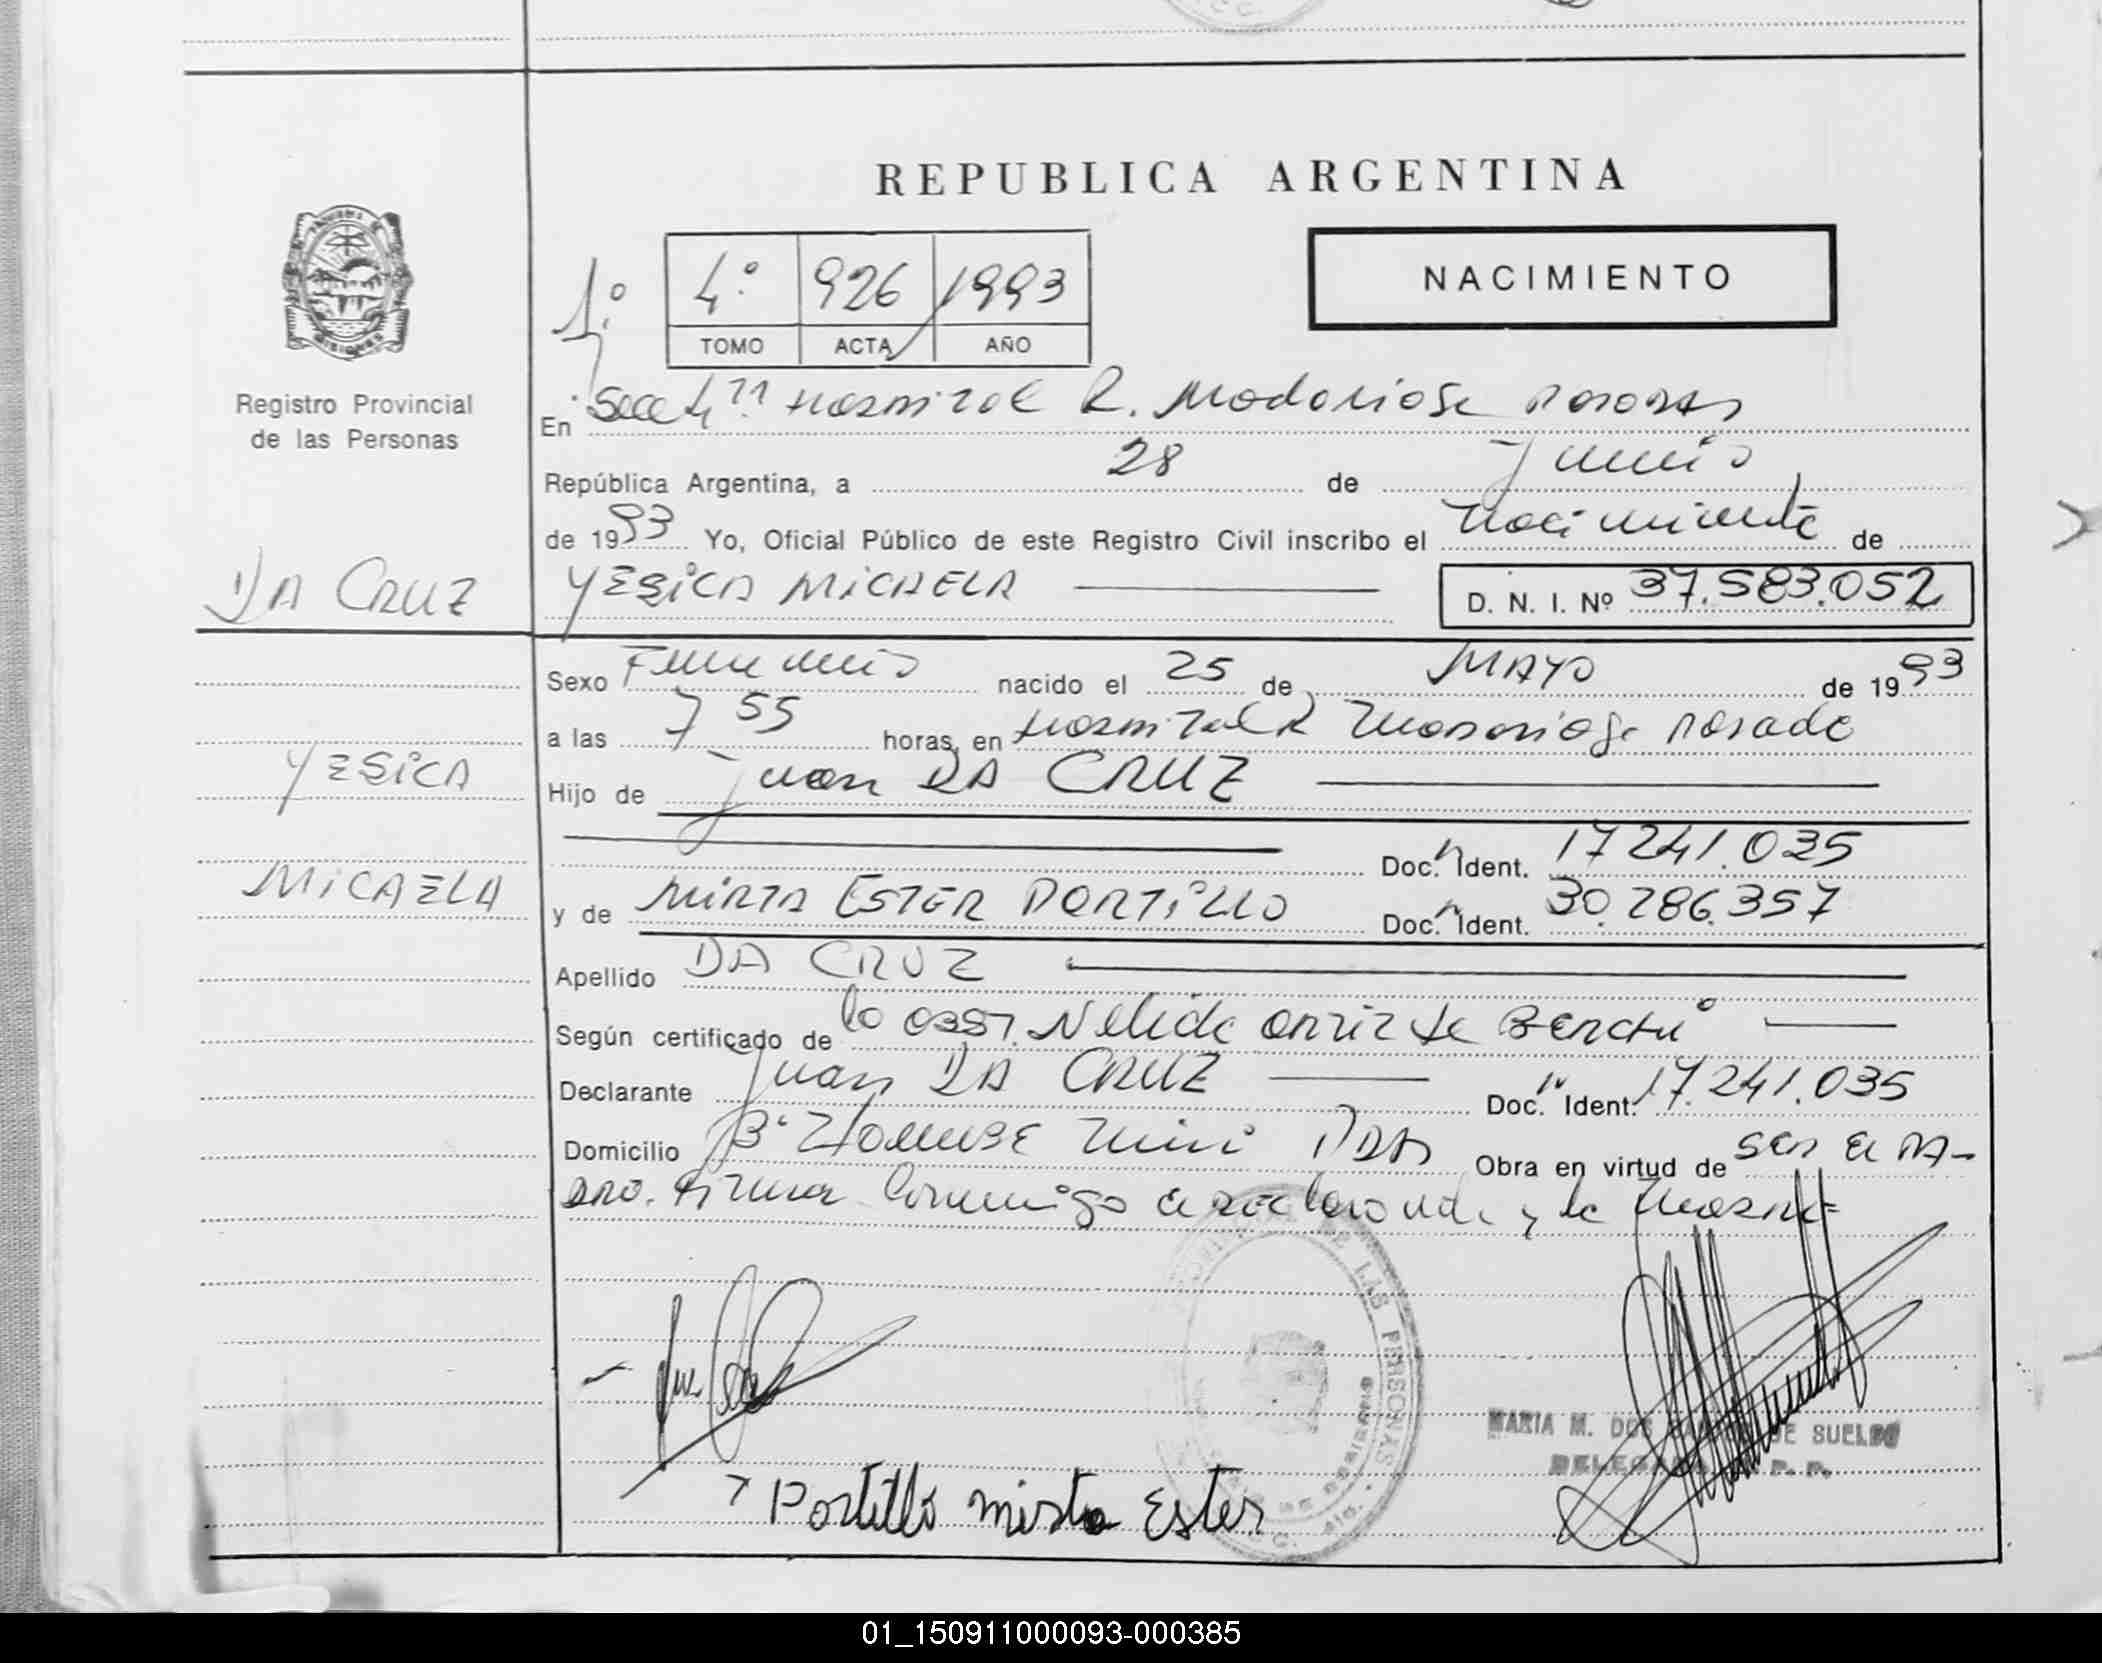 REPUBLICA ARGENTINA
NACIMIENTO
1º
4º 926 1993
TOMO ACTA AÑO
Registro Provincial
de las Personas
En Secc 4ª Hospital R. Madariaga Posadas
República Argentina, a 28 de Junio
de 1993 Yo, Oficial Público de este Registro Civil inscribo el Nacimiento de
DA CRUZ
YESICA MICAELA
D. N. I. Nº 37.583.052
Sexo Femenino nacido el 25 de MAYO de 1993
a las 7 55 horas, en Hospital R Madariaga Posadas
YESICA
Hijo de Juan DA CRUZ
Doc. Ident. 17 241.035
MICAELA
y de MIRTA ESTER PORTILLO Doc. Ident. 30.286.357
Apellido DA CRUZ
Según certificado de la obst. Nelida
Declarante Juan DA CRUZ Doc. Ident. 17.241.035
Domicilio Bº Obra en virtud de ser el pa-
dre. Firma conmigo el declarante y la
DE LAS PERSONAS
MARIA M. DOS DE SUELDO
DELEGADA R. P. P.
Portillo mirta Ester
01_150911000093-000385